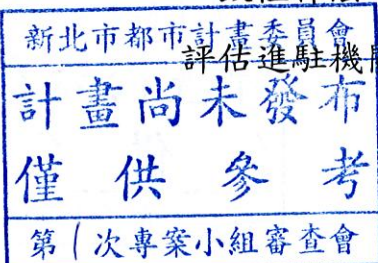 新北市都市計畫委員會
評估進駐機
計畫尚未發布
僅供參考
第1次專案小組審查會